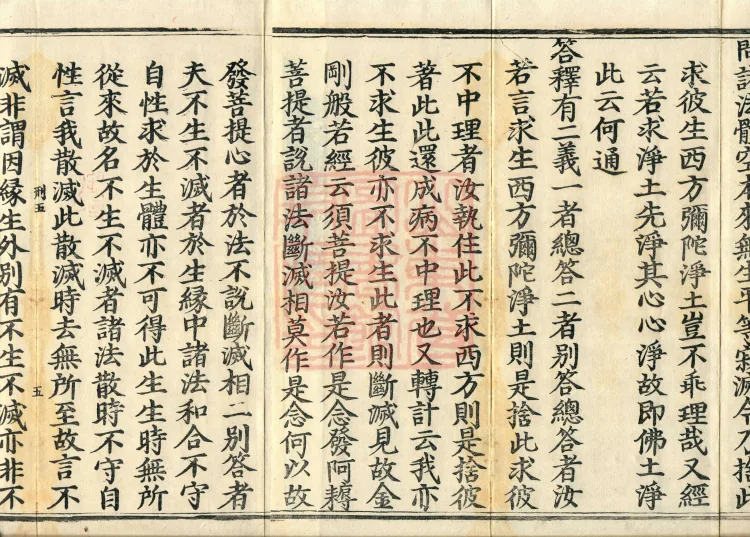 問諸法體空本來無生平等寂滅今乃捨此
求彼生西方彌陀淨土豈不乖理哉又經
云若求淨土先淨其心心淨故即佛土淨
此云何通
答釋有二義一者總答二者別答總答者汝
若言求生西方彌陀淨土則是捨此求彼
不中理者汝執住此不求西方則是捨彼
著此此還成病不中理也又轉計云我亦
不求生彼亦不求生此者則斷滅見故金
剛般若經云須菩提汝若作是念發阿耨
菩提者說諸法斷滅相莫作是念何以故
發菩提心者於法不說斷滅相二別答者
夫不生不滅者於生緣中諸法和合不守
自性求於生體亦不可得此生生時無所
從來故名不生不滅者諸法散時不守自
性言我散滅此散滅時去無所至故言不
刑五 五
滅非謂因緣生外別有不生不滅亦非不